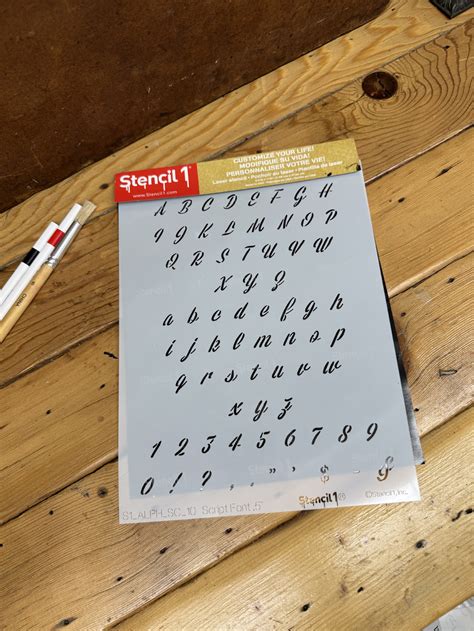 Stencil1®
www.Stencil1.com
CUSTOMIZE YOUR LIFE!
MODIFIQUE SU VIDA!
PERSONNALISER VOTRE VIE!
Laser stencil • Pochoir au laser • Plantilla de laser
A B C D E F G H
I J K L M N O P
Q R S T U V W
X Y Z
a b c d e f g h
i j k l m n o p
q r s t u v w
x y z
1 2 3 4 5 6 7 8 9
0 ! ? , . " ' $
Stencil1®
©Stencil1, Inc.
S1_ALPH_SC_10 Script Font .5"